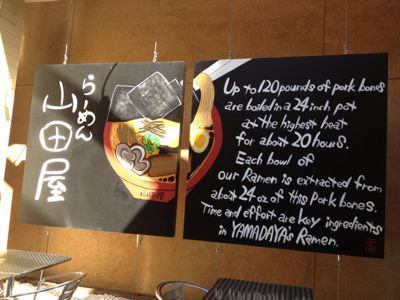 らーめん
山田屋
Up to 120 pounds of pork bones
are boiled in a 24 inch pot
at the highest heat
for about 20 hours.
Each bowl of
our Ramen is extracted from
about 24 oz of this Pork bones.
Time and effort are key ingredients
in YAMADAYA's Ramen.